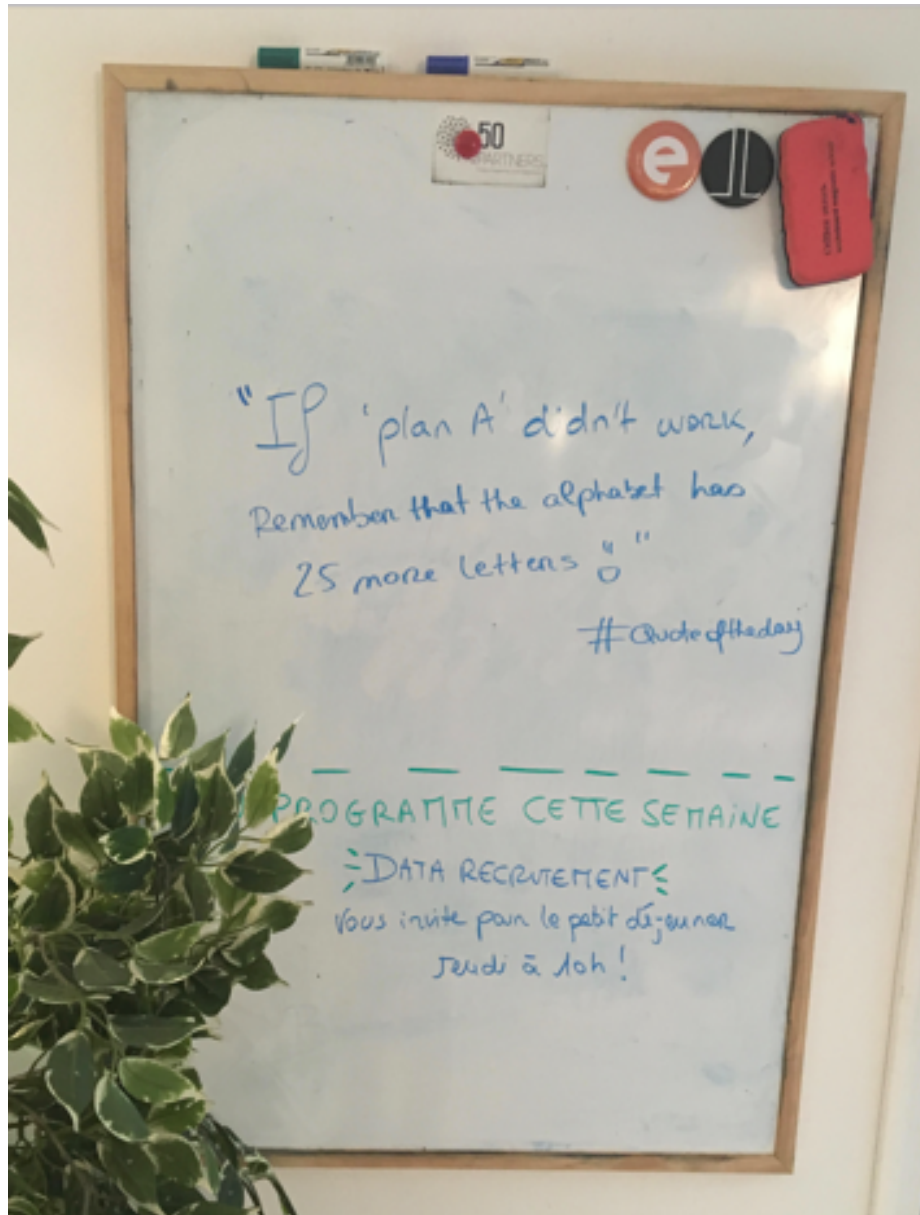 50
PARTNERS
e
"If 'plan A' didn't work,
Remember that the alphabet has
25 more letters "
#Quoteoftheday
PROGRAMME CETTE SEMAINE
DATA RECRUTEMENT
Vous invite pour le petit déjeuner
Jeudi à 10h !